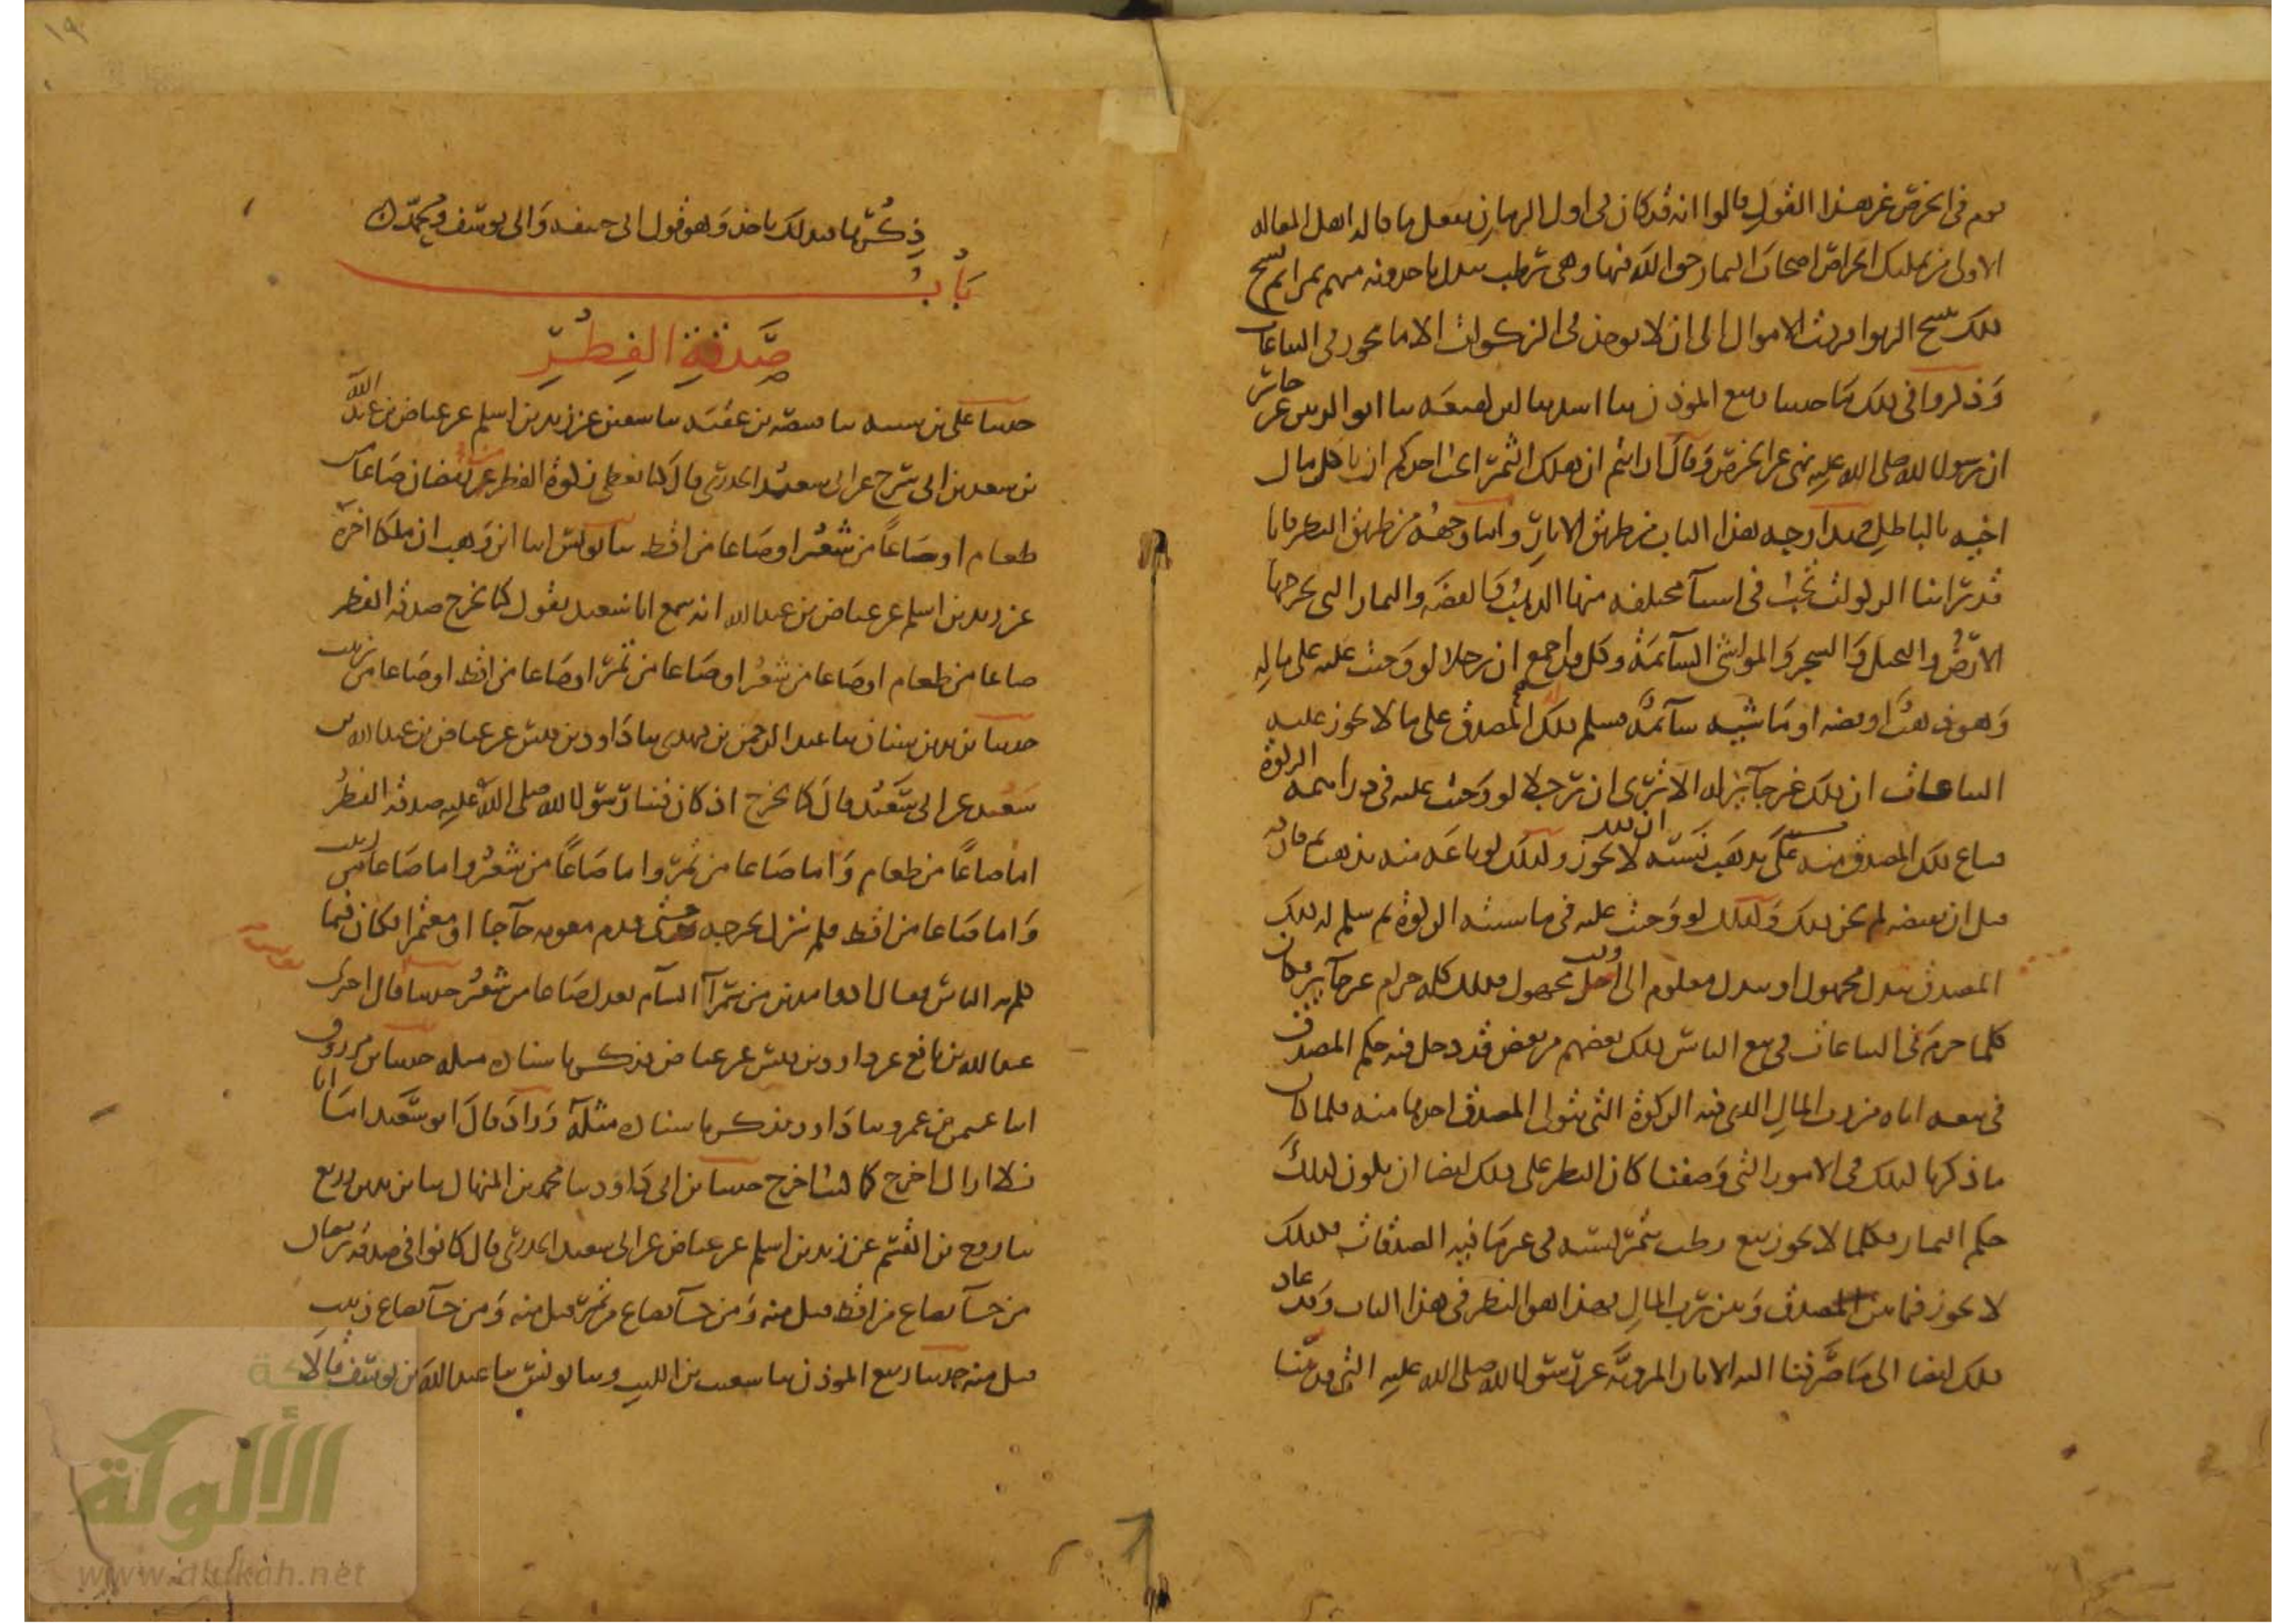 يوم في الخرص غير هذا القول قالوا انه قد كان في اول الزمان يفعل ما قال اهل المقاله
الاولى من تمليك الخراص اصحاب الثمار حق الله فيها وهي رطب ببدل ياخذونه منهم تمرا ثم نسخ
ذلك بنسخ الربوا فردت الاموال الى ان لا يوخذ في الزكوات الا ما يجوز في البياعات
وذكروا في ذلك ما حدثنا ربيع المؤذن ثنا اسد ثنا ابن لهيعه ثنا ابو الزبير عن جابر
ان رسول الله صلى الله عليه نهى عن الخرص وقال ارايتم ان هلك الثمر ايحب احدكم ان ياكل مال
اخيه بالباطل فهذا وجه هذا الباب من طريق الاثار واما وجهه من طريق النظر فانا
قد راينا الزكوات تجب في اشيا مختلفه منها الذهب والفضه والثمار التي تخرجها
الارض والنخل والشجر والمواشي السائمة وكل قد اجمع ان رجلا لو وجبت عليه على ماله
وهو ذهب او فضه او ماشيه سائمة فسلم ذلك له المصدق على ما لا يجوز عليه
البياعات ان ذلك غير جائز له الا ترى ان رجلا لو وجبت عليه في دراهمه الزكوة
فباع ذلك المصدق منه بذهب نسيئه ان ذلك لا يجوز وكذلك لو باعه منه بذهب ثم فارقه
قبل ان يقبضه لم يجز ذلك وكذلك لو وجبت عليه في ماشيته الزكوة ثم سلم له ذلك
المصدق ببدل مجهول او ببدل معلوم الى اجل مجهول فذلك كله حرام غير جائز فكان
كلما حرم في البياعات في بيع الناس ذلك بعضهم من بعض قد دخل فيه حكم المصدق
في بيعه اياه من رب المال الذي فيه الزكوة التي يتولى المصدق اخذها منه فلما كان
ما ذكرنا كذلك في الامور التي وصفنا كان النظر على ذلك ايضا ان يكون كذلك
حكم الثمار فكلما لا يجوز بيع رطب بتمر نسيئه في غير ما فيه الصدقات فكذلك
لا يجوز فيما بين المصدق وبين رب المال فهذا هو النظر في هذا الباب وقد عاد
ذلك ايضا الى ما صرفنا اليه الاثار المرويه عن رسول الله صلى الله عليه التي قدمنا
ذكرها فبذلك ناخذ وهو قول ابي حنيفه وابي يوسف ومحمد
باب
صدقة الفطر
حدثنا علي بن شيبه ثنا قبيصه بن عقبه ثنا سفين عن زيد بن اسلم عن عياض بن عبد الله
بن سعد بن ابي سرح عن ابي سعيد الخدري قال كنا نعطي زكوة الفطر من رمضان صاعا من
طعام او صاعا من شعير او صاعا من اقط ثنا يونس انا ابن وهب ان ملكا اخبره
عن زيد بن اسلم عن عياض بن عبد الله انه سمع ابا سعيد يقول كنا نخرج صدقه الفطر
صاعا من طعام او صاعا من شعير او صاعا من تمر او صاعا من اقط او صاعا من زبيب
حدثنا يزيد بن سنان ثنا عبد الرحمن بن مهدي ثنا داود بن قيس عن عياض بن عبد الله بن
سعد عن ابي سعيد قال كنا نخرج اذ كان فينا رسول الله صلى الله عليه صدقه الفطر
اما صاعا من طعام واما صاعا من تمر واما صاعا من شعير واما صاعا من زبيب
واما صاعا من اقط فلم نزل نخرجه حتى قدم معويه حاجا او معتمرا فكان فيما
كلم به الناس فقال ادوا مدين من سمرآ الشام يعدل صاعا من شعير حدثنا قال اخبرنا
عبد الله بن نافع عن داود بن قيس عن عياض فذكر باسناده مثله حدثنا بن مرزوق
انا عثمن بن عمر ثنا داود فذكر باسناده مثله وزاد قال ابو سعيد اما انا
فلا ازال اخرج كما كنت اخرج حدثنا بن ابي داود ثنا محمد بن المنهال ثنا يزيد بن زريع
ثنا روح بن القسم عن زيد بن اسلم عن عياض عن ابي سعيد الخدري قال كانوا في صدقه رمضان
من جآ بصاع من اقط قبل منه ومن جآ بصاع من تمر قبل منه ومن جآ بصاع زبيب
قبل منه حدثنا ربيع المؤذن ثنا شعيب بن الليث وثنا يونس ثنا عبد الله بن يوسف قالا
الألوكة
www.alukah.net